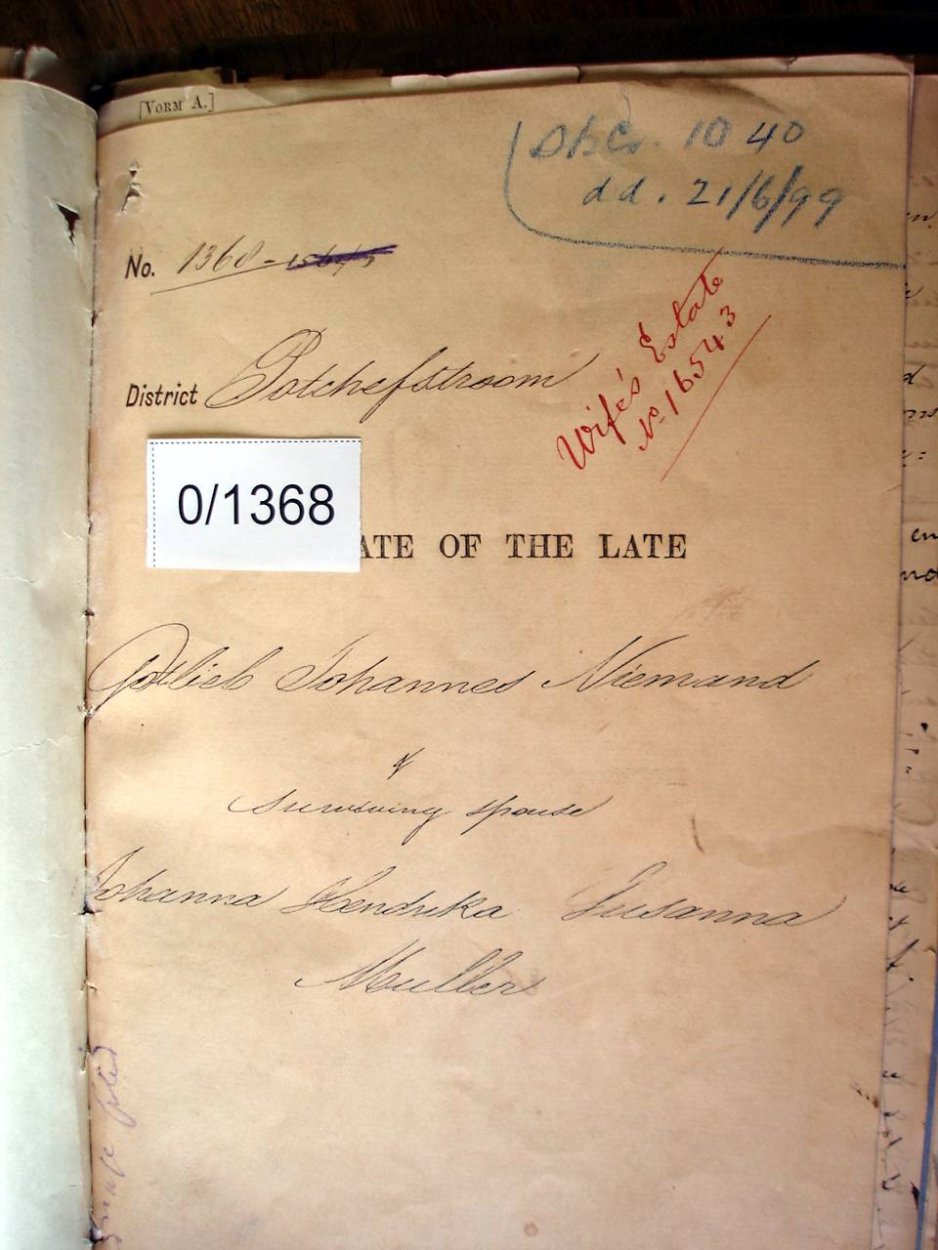 [VORM A.]
10 40
dd. 21/6/99
No. 1368 -
Wife's Estate
No. 16543
District Potchefstroom
0/1368
ATE OF THE LATE
Gotlieb Johannes Niemand
&
Surviving spouse
Johanna Hendrika Susanna
Muller
filed